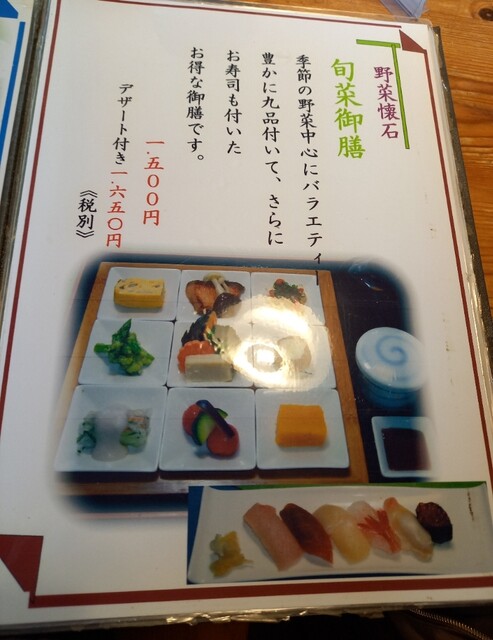 野菜懐石
旬菜御膳
季節の野菜中心にバラエティ
豊かに九品付いて、さらに
お寿司も付いた
お得な御膳です。
一.五〇〇円
デザート付き一.六五〇円
《税別》